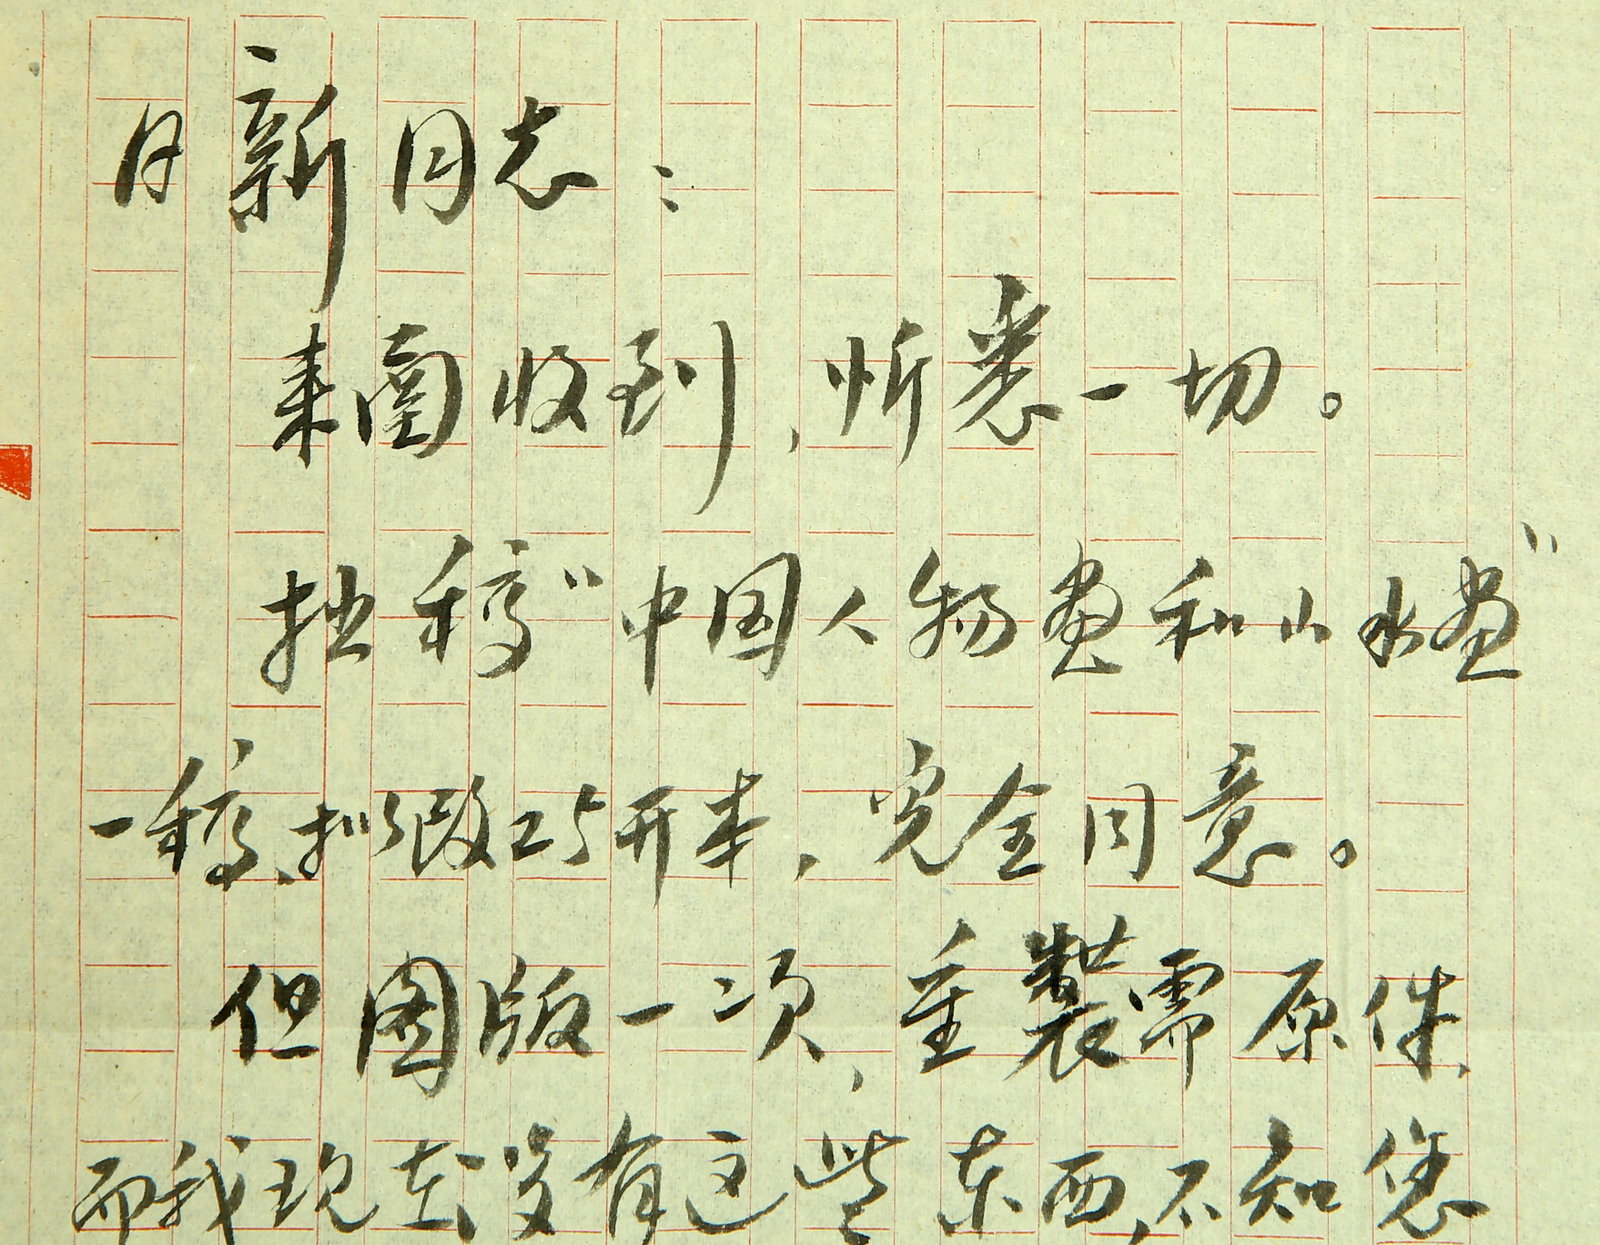 日新同志：
来函收到，忻悉一切。
拙稿“中国人物画和山水画”
一稿，拟改25开本，完全同意。
但图版一次，重制需原件，
而我现在没有这些东西，不知您